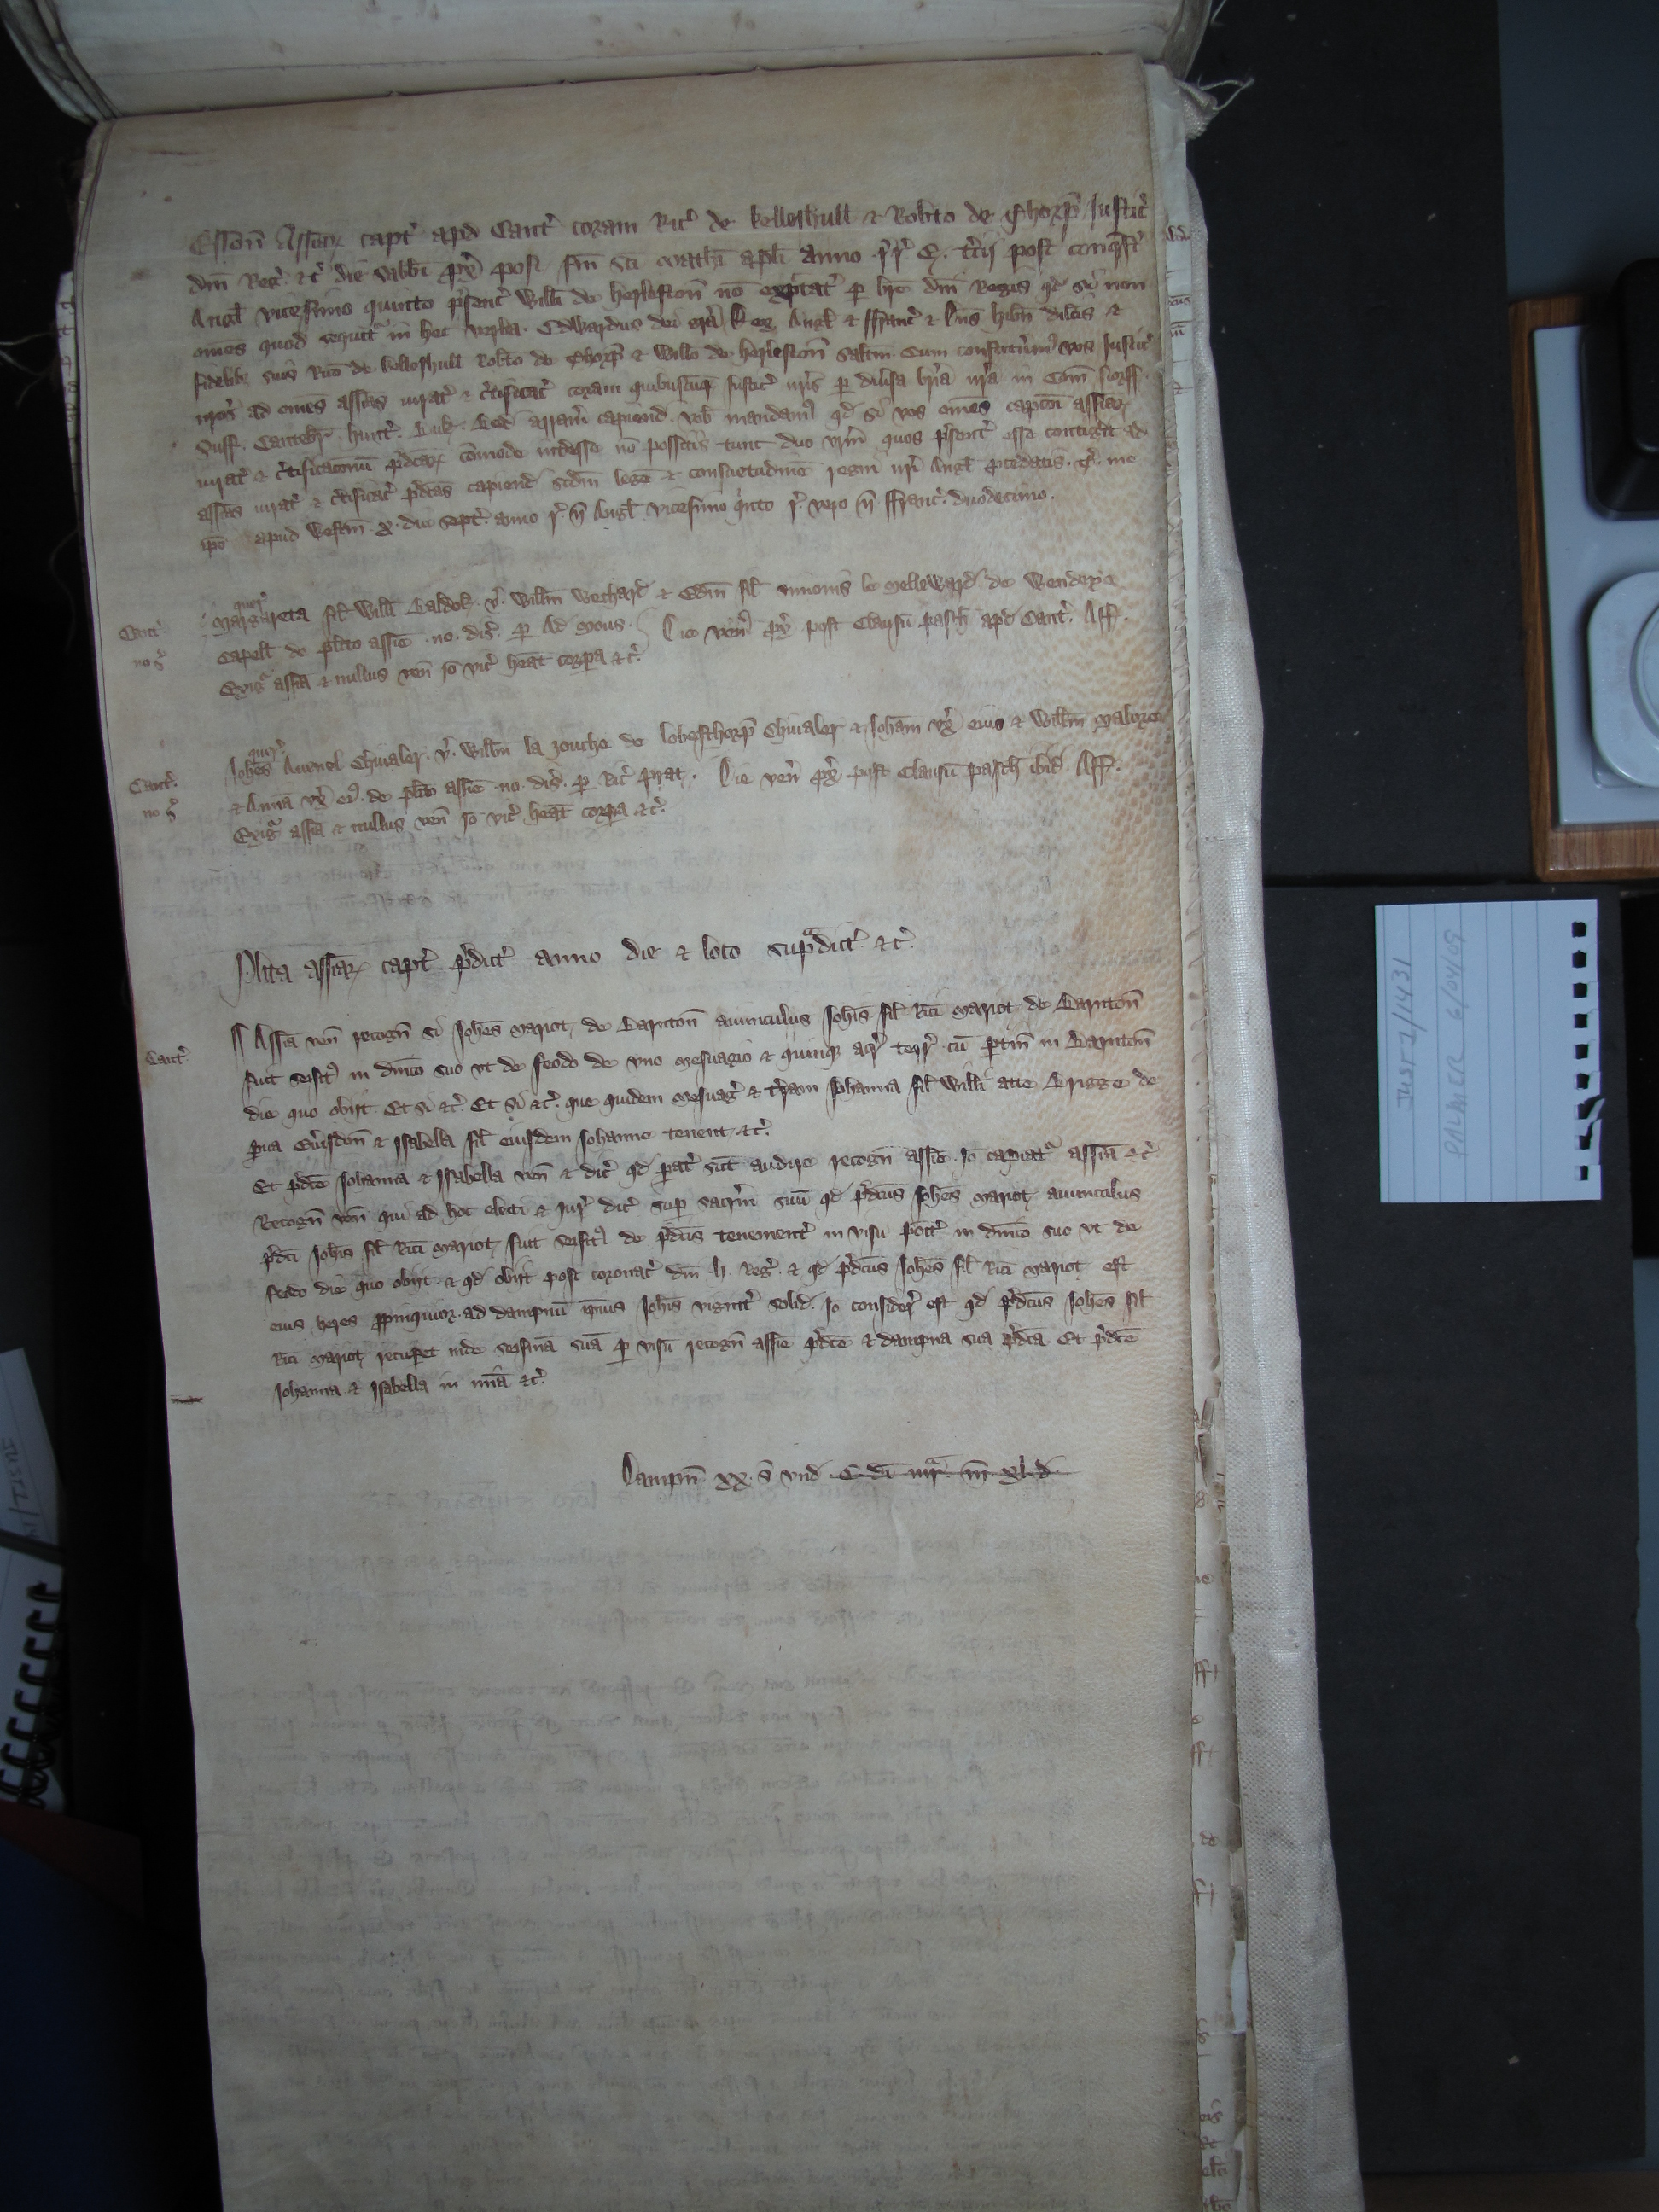 Esson Assiar capt apd Cant coram Ric de Kelleshull & Robto de Thorp Justic
dni Reg &c die sabbi px post fm sci Mathi apli anno r r E. tcij post conqst
Angl vicesimo quinto psent Willi de Herleston no expctat p bre dni Regis qd si non
omes quod sequit in hec verba. Edwardus dei gra Rex Angl & ffranc & Dns Hibn dilcis &
fidelib suis Rico de Kelleshull Robto de Thorp & Willo de Herleston saltm. Cum constituim vos Justic
nros ad omes assias iurat & ctificat coram quibuscuq Justic nris p diusa bria nra in Com Norff
Suff. Cantebr. Hunt. Buk. Bed arram capiend. vob mandam qd si vos omes capcoi assiar
iurat & ctificaconu pdcar comode intdesse no possitis tunc duo vrm quos psent esse contigit ad
assias iurat & ctificat pdcas capiend scdm legem & consuetudine regni nri Angl pcedatis. T. me
ipo apud Westm. x. die Sept. anno r. n Angl vicesimo qinto r. vero n ffranc. duodecimo.
Cant
no s
quer
Margareta fil Willi Baldok. v. Willm Wechard & Edm fil Simonis le Melleward de Wendeye
Capell de plito assie no. dis. p Ad Mous. Die ven px post Clausu pasch apd Cant. Aff.
Exig assia & nullus ven Io vic heat corpa &c.
Cant.
no s
quer
Johes Auenel Chiualer. v. Willm la Zouche de Lobesthorp Chiualer & Joham vx eius & Willm Malore
& Anna vx ei. de plito assie no. dis. p Ric Prat. Die ven px post Clausu pasch ibid Aff.
Exig assia & nullus ven Io vic heat corpa &c.
Plita assiar capt pdict anno die & loco supadict &c.
Cant
Assia ven recogn si Johes Mariot de Barnton auunculus Johis fil Rici Mariot de Barnton
fuit seisit in dnico suo vt de feodo de vno mesuagio & quinq acr terr cu ptin in Barnton
die quo obijt Et si &c. Et si &c. que quidem mesuag & tram Johanna fil Willi atte Brigge de
pua Euisden & Isabella fil eiusdem Johanne tenent &c.
Et pdce Johanna & Isabella ven & dic qd pat sunt audire recogn assie. Io capiat assia &c
Recogn ven qui ad hoc electi & iur dic sup sacrm suu qd pdcus Johes Mariot auunculus
pdci Johis fil Rici Mariot fuit seisit de pdcis tenement in visu poit in dnico suo vt de
feodo die quo obijt & qd obijt post coronat dni H. Reg. & qd pdcus Johes fil Rici Mariot est
eius heres ppinquior. ad dampnu ipius Johis viginti solid. Io consider est qd pdcus Johes fil
Rici Mariot recupet inde seisina sua p visu recogn assie pdce & dampna sua pdca Et pdce
Johanna & Isabella in mia &c.
Dampn xx. s vnd
JUST 1/1431
PALMER 6/04/09